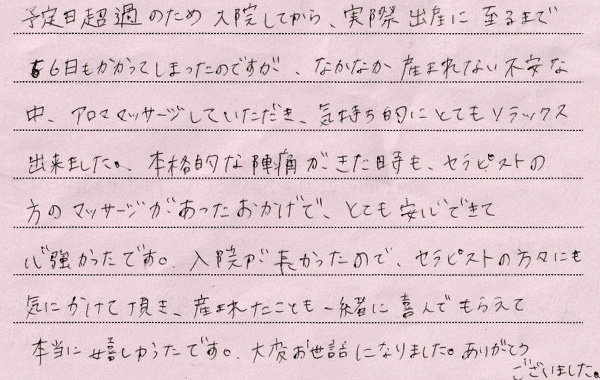 予定日超過のため入院してから、実際出産に至るまで
6日もかかってしまったのですが、なかなか産まれない不安な
中、アロママッサージしていただき、気持ち的にとてもリラックス
出来ました。本格的な陣痛がきた時も、セラピストの
方のマッサージがあったおかげで、とても安心できて
心強かったです。入院が長かったので、セラピストの方々にも
気にかけて頂き、産まれたことも一緒に喜んでもらえて
本当に嬉しかったです。大変お世話になりました。ありがとう
ございました。